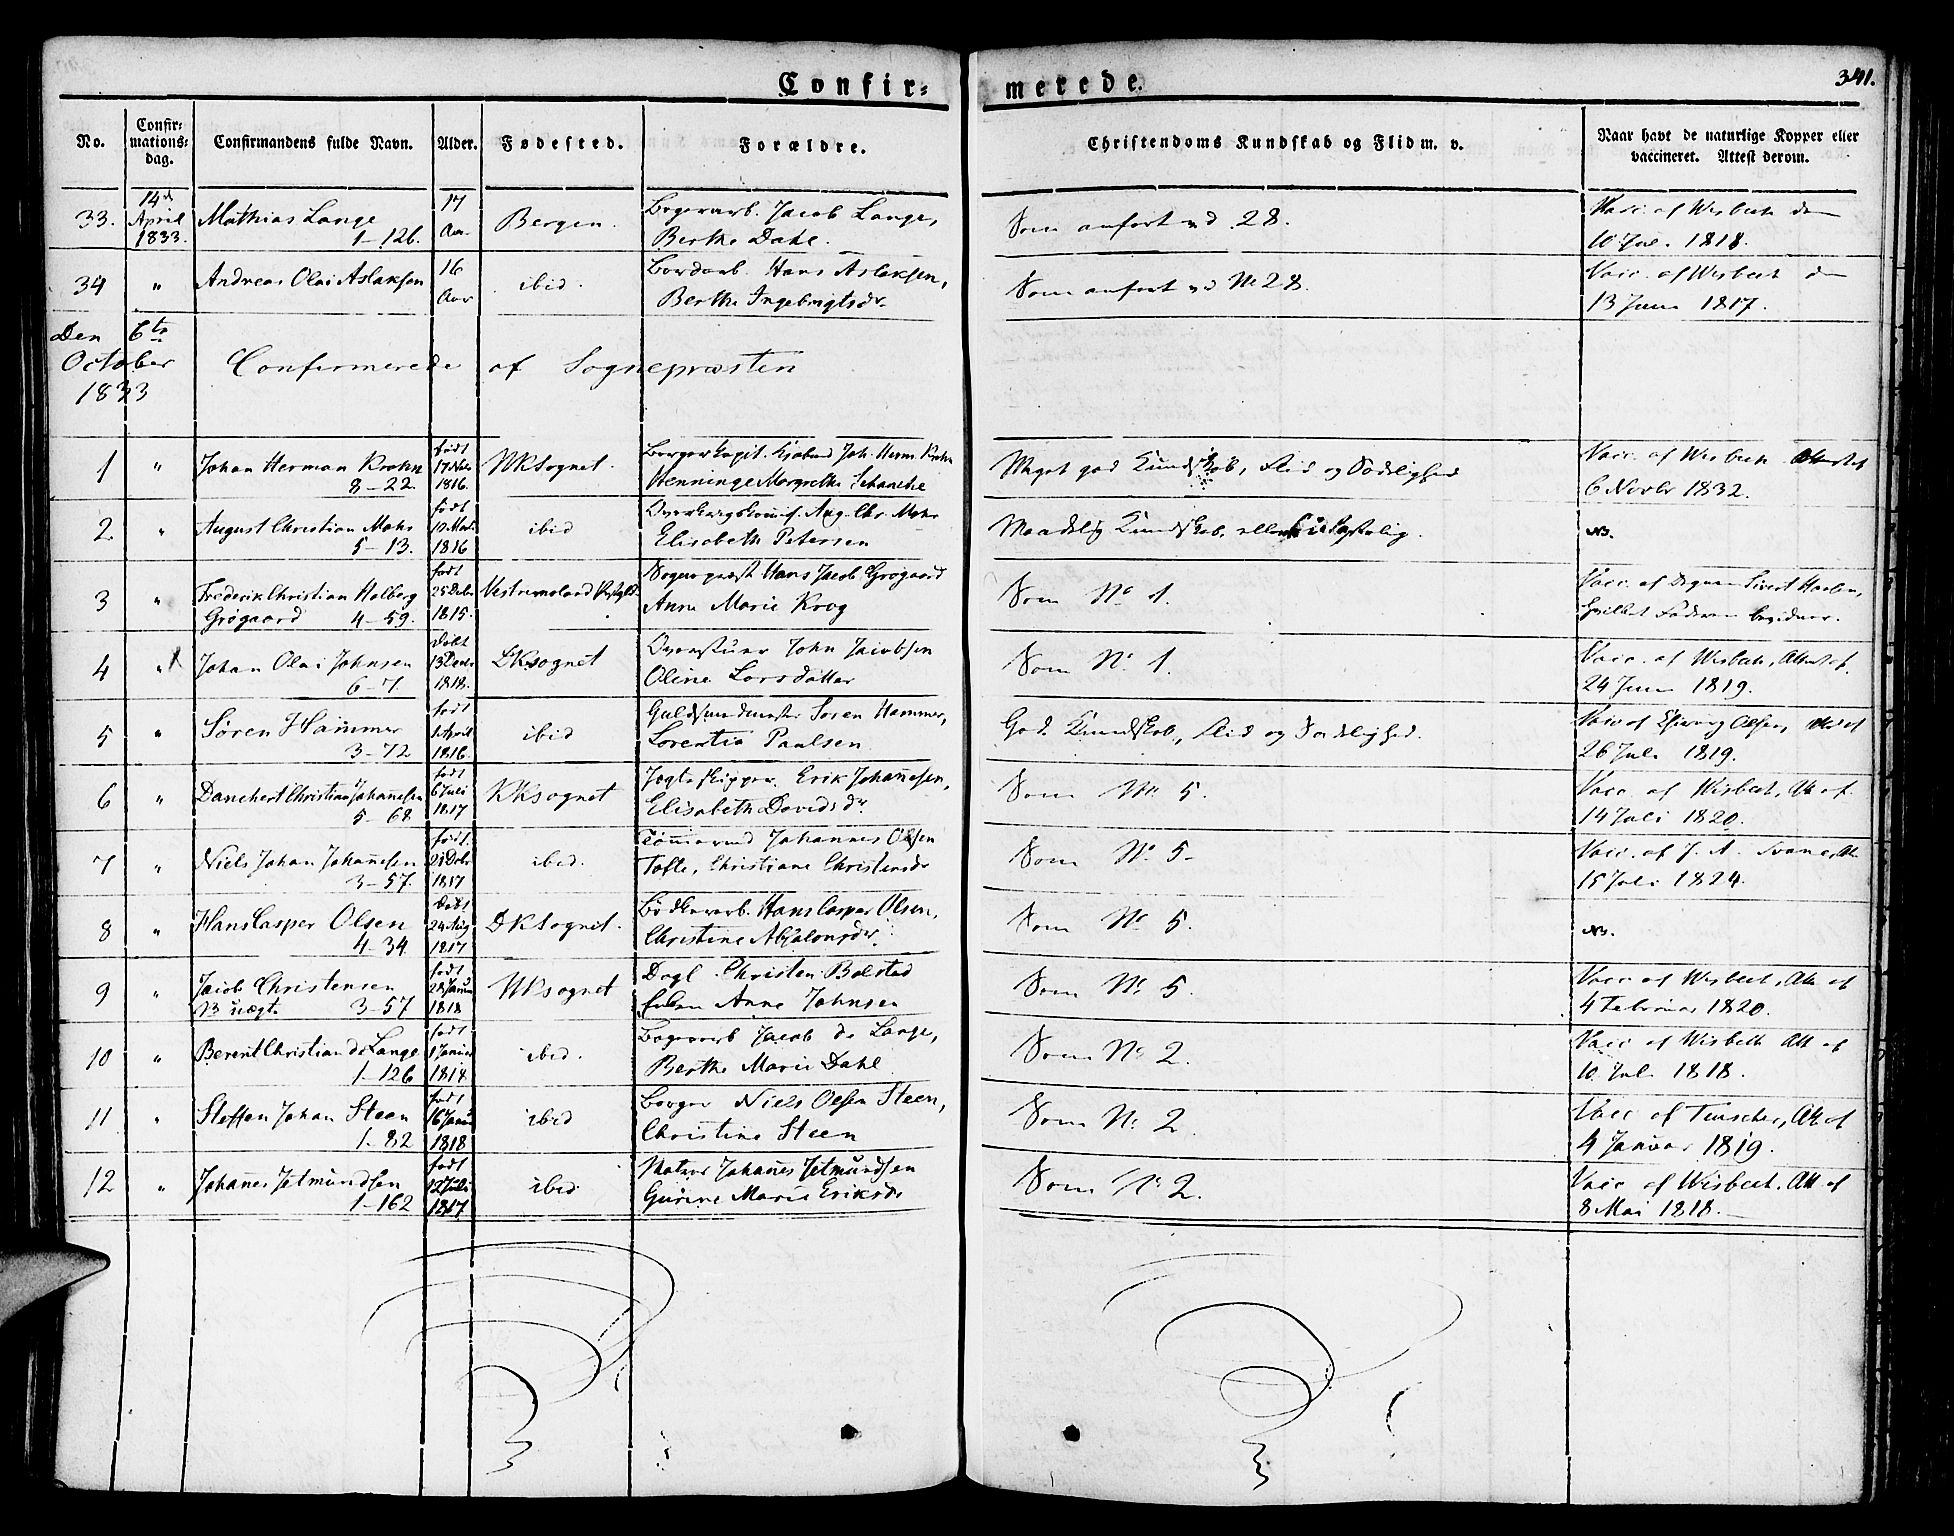 Confir=
merede.
341.
No.
Confir=
mations=
dag.
Confirmandens fulde Navn.
Alder.
Fødested.
Forældre.
Christendoms Kundskab og Flid m. v.
Naar havt de naturlige Kopper eller
vaccineret. Attest derom.
33.
14de
April
1833.
Mathias Lange
1-126.
17
Aar
Bergen.
Jacob Lange,
Berthe Dahl.
Som anført ved 28.
Vacc. af Wisbech den
10 Jul. 1818.
34
"
Andreas Olai Aslaksen
16
Aar
ibid.
Hans Aslaksen,
Berthe Ingebrigtsdr
Som anført ved No 28.
Vacc. af Wisbech den
13 Juni 1817.
Den 6te
October
1833
Confirmerede af Sognepræsten
1
"
Johan Herman Krohn
8-22.
født
17 Novbr
1816.
NKSognet.
Joh. Herm. Krohn
Henninge Margrethe Schanche
Meget god Kundskab, Flid og Sædelighed
Vacc. af Wisbech
6 Novbr 1832.
2
"
August Christian Mohr
5-13.
født
1816
ibid
Aug. Chr. Mohr
Elisabeth Petersen
Maadelig Kundskab,
3
"
Frederik Christian Holberg
Grøgaard 4-59.
født
25 Debr
1815.
Sognepræst Hans Jacob Grøgaard
Anne Marie Krog
Som No 1.
Vacc. af
4
"
Johan Olai Johnsen
6-7.
født
13 Decbr
1818.
DKsognet
John Jacobsen
Oline Larsdatter
Som No 1.
Vacc. af Wisbech, Attest af
24 Juni 1819.
5
"
Søren Hammer
3-72
født
1 April
1816.
ibid
Søren Hammer,
Lorentia Paulsen
God Kundskab, Flid og Sædelighed.
Vacc. af Olsen,
26 Juli 1819.
6
"
Danchert Christian Johannesen
5-68.
født
6 Juli
1817
KKsognet
Jægteskipper Erik Johannesen,
Elisabeth Davidsdr
Som No 5.
Vacc. af Wisbech, Att. af
14 Juli 1820.
7
"
Niels Johan Johannesen
3-57.
født
1817
ibid.
Tømmermd Johannes Olsen
Tofte, Christiane Christensdr
Som No 5
Vacc. af J. A.
15 Juli 1824.
8
"
Hans Casper Olsen
4-34
født
24 Aug
1817
DKSognet.
Bødkerarb. Hans Casper Olsen,
Christine Absalonsdr.
Som No 5.
9
"
Jacob Christensen
3-57
født
28 Januar
1818
NKsognet
Dagl. Christen Bolstad
Anne Johnsen
Som No 5.
Vacc af Wisbech, Att af
4 Februar 1820.
10
"
Berent Christian de Lange
1-126
født
1 Januar
1818
ibid.
Jacob de Lange,
Berthe Marie Dahl
Som No 2.
Vacc. af Wisbech Att af
10 Jul. 1818.
11
"
Steffen Johan Steen
1-82
født
16 Januar
1818
ibid
Borger Niels Olsen Steen,
Christine Steen
Som No 2.
Vacc af Att af
4 Januar 1819.
12
"
Johannes Jetmundsen
1-162
født
12 Juli
1817
ibid
Matros Johannes Jetmundsen
Gurine Marie Eriksdr
Som No 2.
Vacc af Wisbech. Att af
8 Mai 1818.